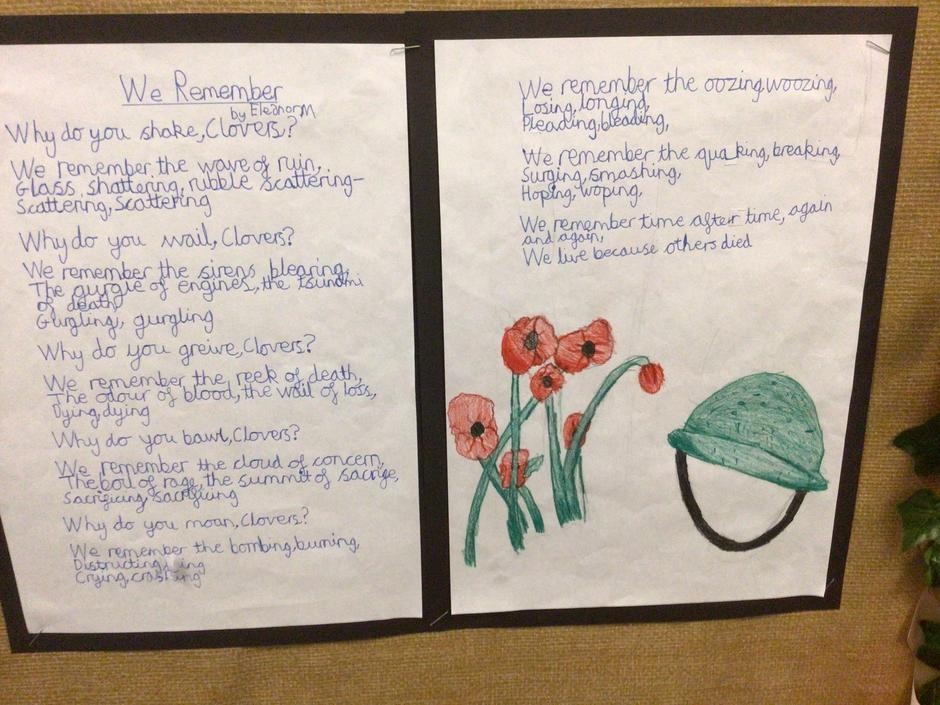 We Remember
by Eleanor M
Why do you shake, Clovers?
We remember the wave of ruin,
Glass shattering, rubble scattering-
Scattering, Scattering
Why do you wail, Clovers?
We remember the sirens blearing,
The gurgle of engines, the tsunami
of death
Gurgling, gurgling
Why do you greive, Clovers?
We remember the reek of death,
The odour of blood, the wail of loss,
Dying, dying
Why do you bawl, Clovers?
We remember the cloud of concern,
The boil of rage, the summit of sacrige,
Sacrificing, sacrificing
Why do you moan, Clovers?
We remember the bombing, burning,
Distructing,
Crying, crashing
We remember the oozing, woozing,
Losing, longing,
Pleading, bleading,
We remember the quaking, breaking,
Surging, smashing,
Hoping, woping,
We remember time after time, again
and again,
We live because others died